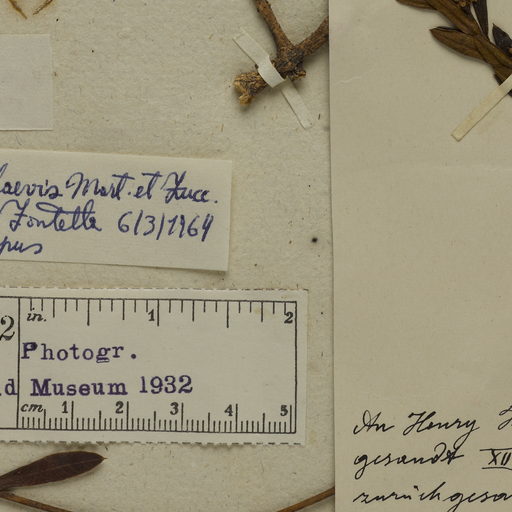 laevis Mart. et Zucc.
Fontella 6/3/1969
pus
2 in. 1 2
Photogr.
ld Museum 1932
cm 1 2 3 4 5
An Henry
gesandt XII
zurückgesa